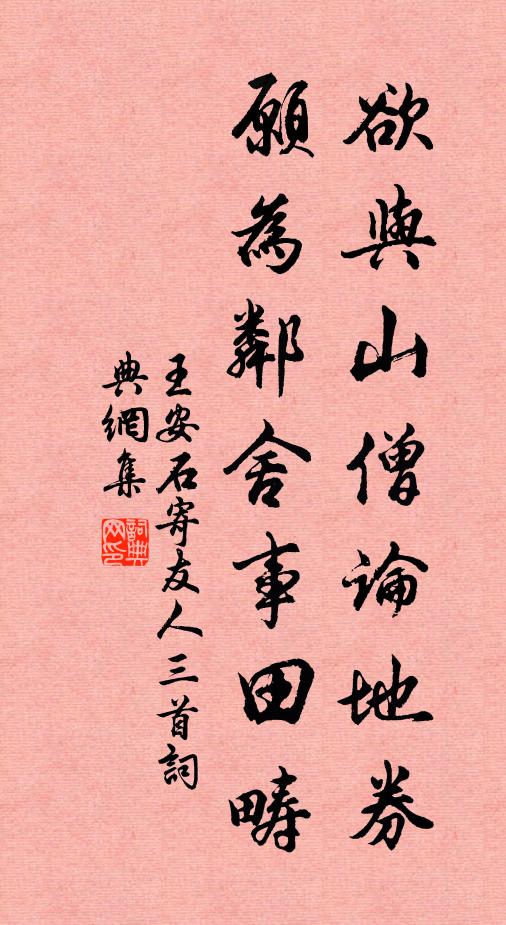 欲與山僧論地券
願為鄰舍事田疇
王安石寄友人三首詞
典網集
詞典网印